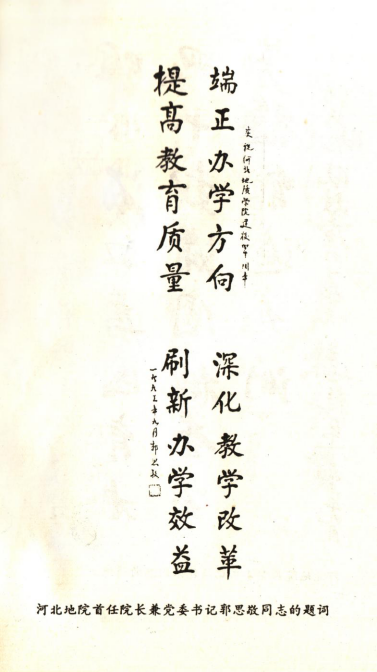 祝河北地质学院建校周年
端正办学方向 深化教学改革
提高教育质量 刷新办学效益
一九九三年九月郭思敬
河北地院首任院长兼党委书记郭思敬同志的题词